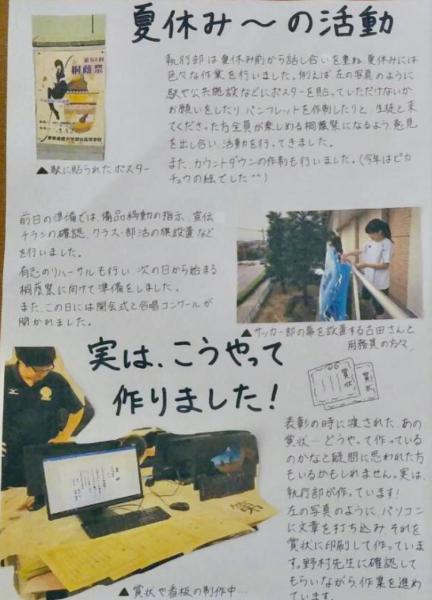 夏休み～の活動
執行部は夏休み前から話し合いを重ね、夏休みには
色々な作業を行いました。例えば左の写真のように
駅や公共施設などにポスターを貼っていただけないか
お願いをしたり、パンフレットを作制したりと、生徒と来
てくださった方全員が楽しめる桐蔭祭になるよう、意見
を出し合い、活動を行ってきました。
また、カウントダウンの作制も行いました。(今年はピカ
チュウの絵でした^^)
桐蔭祭
▲駅に貼られたポスター
前日の準備では、備品移動の指示、宣伝
チラシの確認、クラス・部活の模設置など
を行いました。
有志のリハーサルも行い、次の日から始まる
桐蔭祭に向けて準備をしました。
また、この日には開会式と合唱コンクールが
開かれました。
▲サッカー部の幕を設置する古田さんと
用務員の方々
実は、こうやって
作りました!
賞状
賞状
表彰の時に渡された、あの
賞状…どうやって作っている
のかなと疑問に思われた方
もいるかもしれません。実は、
執行部が作っています!
左の写真のように、パソコン
に文章を打ち込み、それを
賞状に印刷して作っていま
す。野村先生に確認して
もらいながら、作業を進め
ています。
▲賞状や看板の制作中…